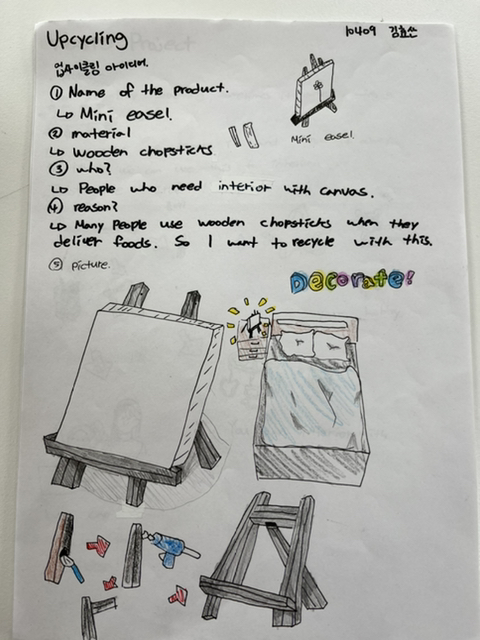 Upcycling
10409 김효산
업사이클링 아이디어.
① Name of the product.
↳ Mini easel.
② material
↳ Wooden chopsticks
③ who?
↳ People who need interior with canvas.
④ reason?
↳ Many People use wooden chopsticks when they
deliver foods. So I want to recycle with this.
⑤ picture.
Mini easel.
Decorate!